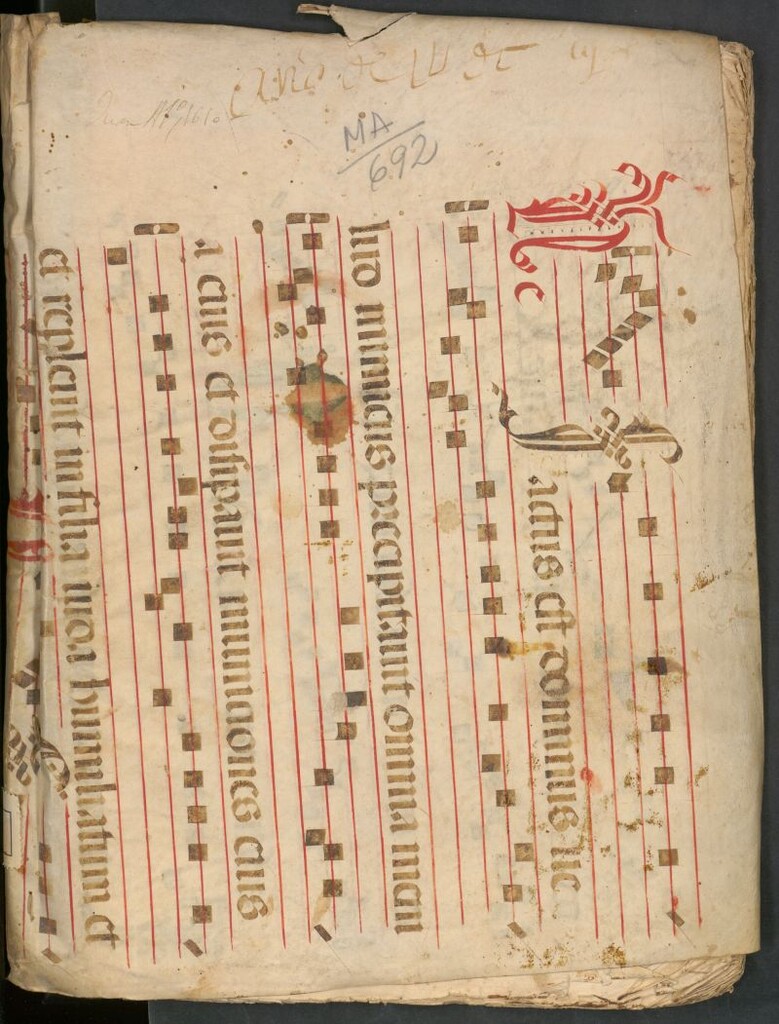 MA/692
He
Factus est dominus ue
lut inimicus precipitauit omnia meni
a eius et disipauit munitiones eius
et repleuit in filia iuda humiliatum et